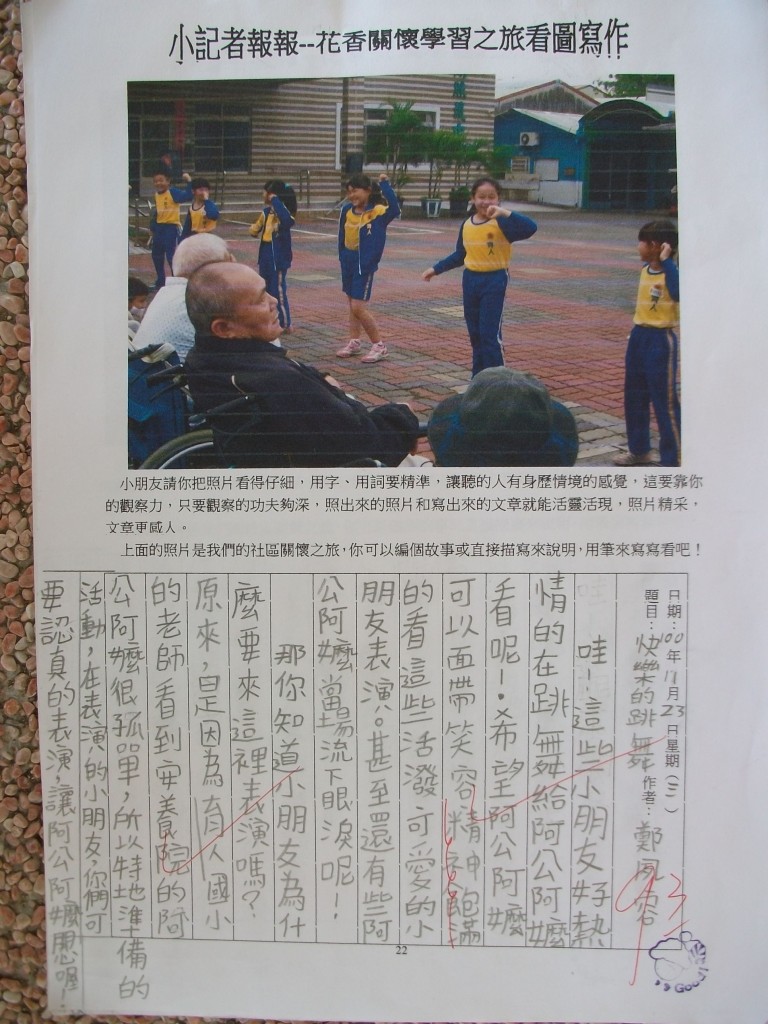 小記者報報--花香關懷學習之旅看圖寫作
小朋友請你把照片看得仔細，用字、用詞要精準，讓聽的人有身歷情境的感覺，這要靠你
的觀察力，只要觀察的功夫夠深，照出來的照片和寫出來的文章就能活靈活現，照片精采，
文章更感人。
上面的照片是我們的社區關懷之旅，你可以編個故事或直接描寫來說明，用筆來寫寫看吧！
日期：100年11月23日星期（三）
題目：快樂的跳舞 作者：鄭風
93
哇！這些小朋友好熱
情的在跳舞給阿公阿嬤
看呢！希望阿公阿嬤
可以面帶笑容精神飽滿
的看這些活潑可愛的小
朋友表演。甚至還有些阿
公阿嬤當場流下眼淚呢！
那你知道小朋友為什
麼要來這裡表演嗎？
原來，是因為育人國小
的老師看到安養院的阿
公阿嬤很孤單，所以特地準備的
活動，在表演的小朋友，你們可
要認真的表演，讓阿公阿嬤想喔！
22
Good!